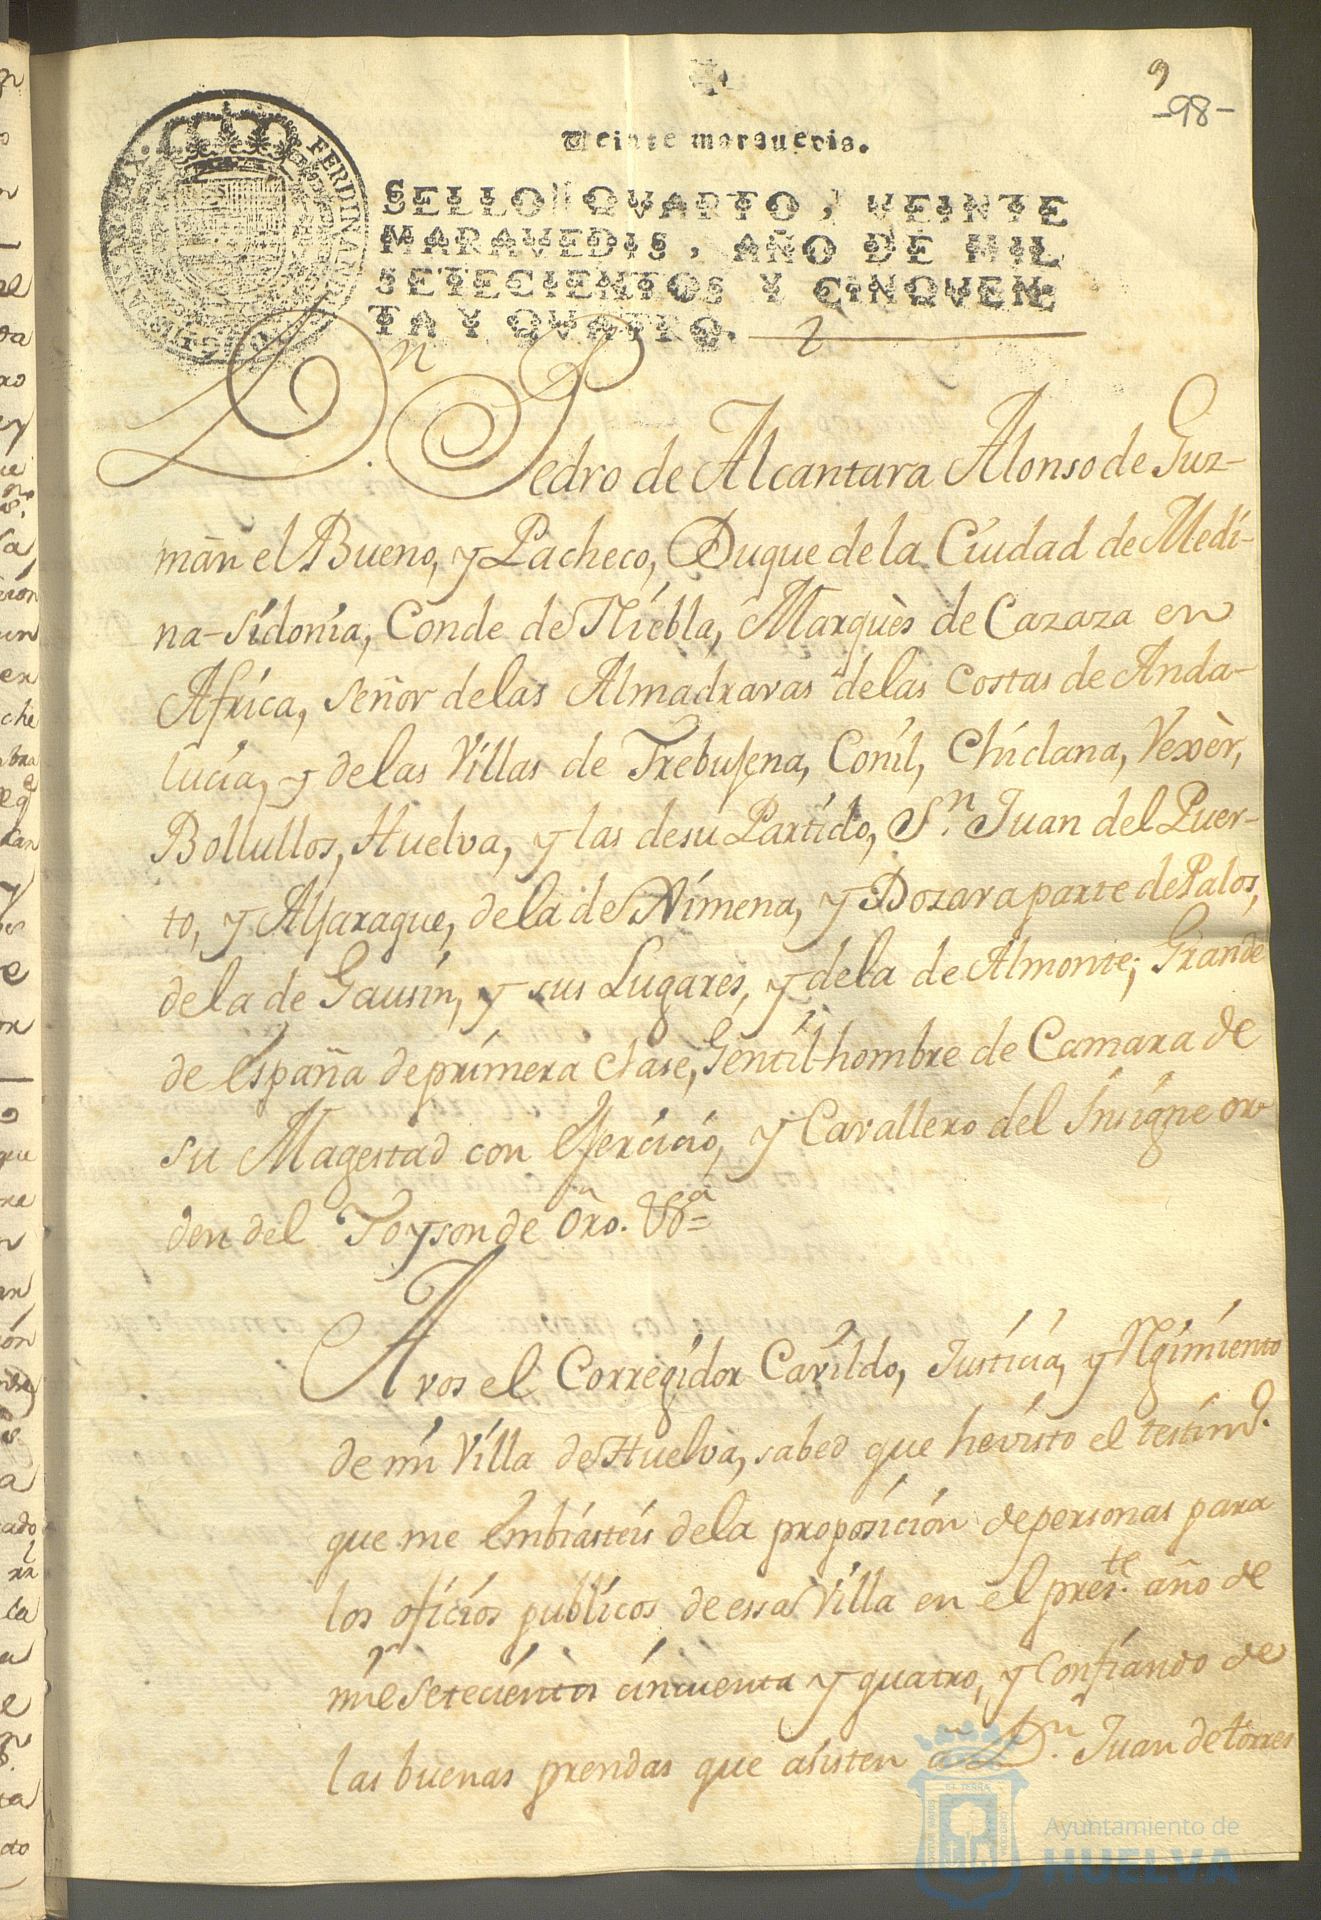 9
-98-
Veinte maravedis.
SELLO QVARTO, VEINTE
MARAVEDIS, AÑO DE MIL
SETECIENTOS Y CINQVEN
TA Y QVATRO.
Dn. Pedro de Alcantara Alonso de Guz-
mān el Bueno, y Pacheco, Duque de la Ciudad de Medi-
na-Sidonia, Conde de Niebla, Marquès de Cazaza en
Africa, Señor delas Almadravas delas Costas de Anda-
lucia, y delas Villas de Trebujena, Conil, Chiclana, Vexèr,
Bollullos, Huelva, y las desu Partido, Sn. Juan del Puer-
to, y Aljaraque, dela de Ximena, y Dozava parte de Palos,
dela de Gausin, y sus Lugares, y dela de Almonte; Grande
de España de primera Clase, Gentil-hombre de Camara de
su Magestad con Exercicio, y Cavallero del Insigne or
den del Toyson de Oro. Va=
A vos el Corregidor Cavildo, Justicia, y Rgimiento
de mi Villa de Huelva, sabed que hè visto el testimo.
que me embiasteis dela proposicion de personas para
los oficios publicos de essa Villa en el preste. año de
mil setecientos cincuenta y quatro, y confiando de
las buenas prendas que asisten à Dn. Juan de torres
Ayuntamiento de
HUELVA